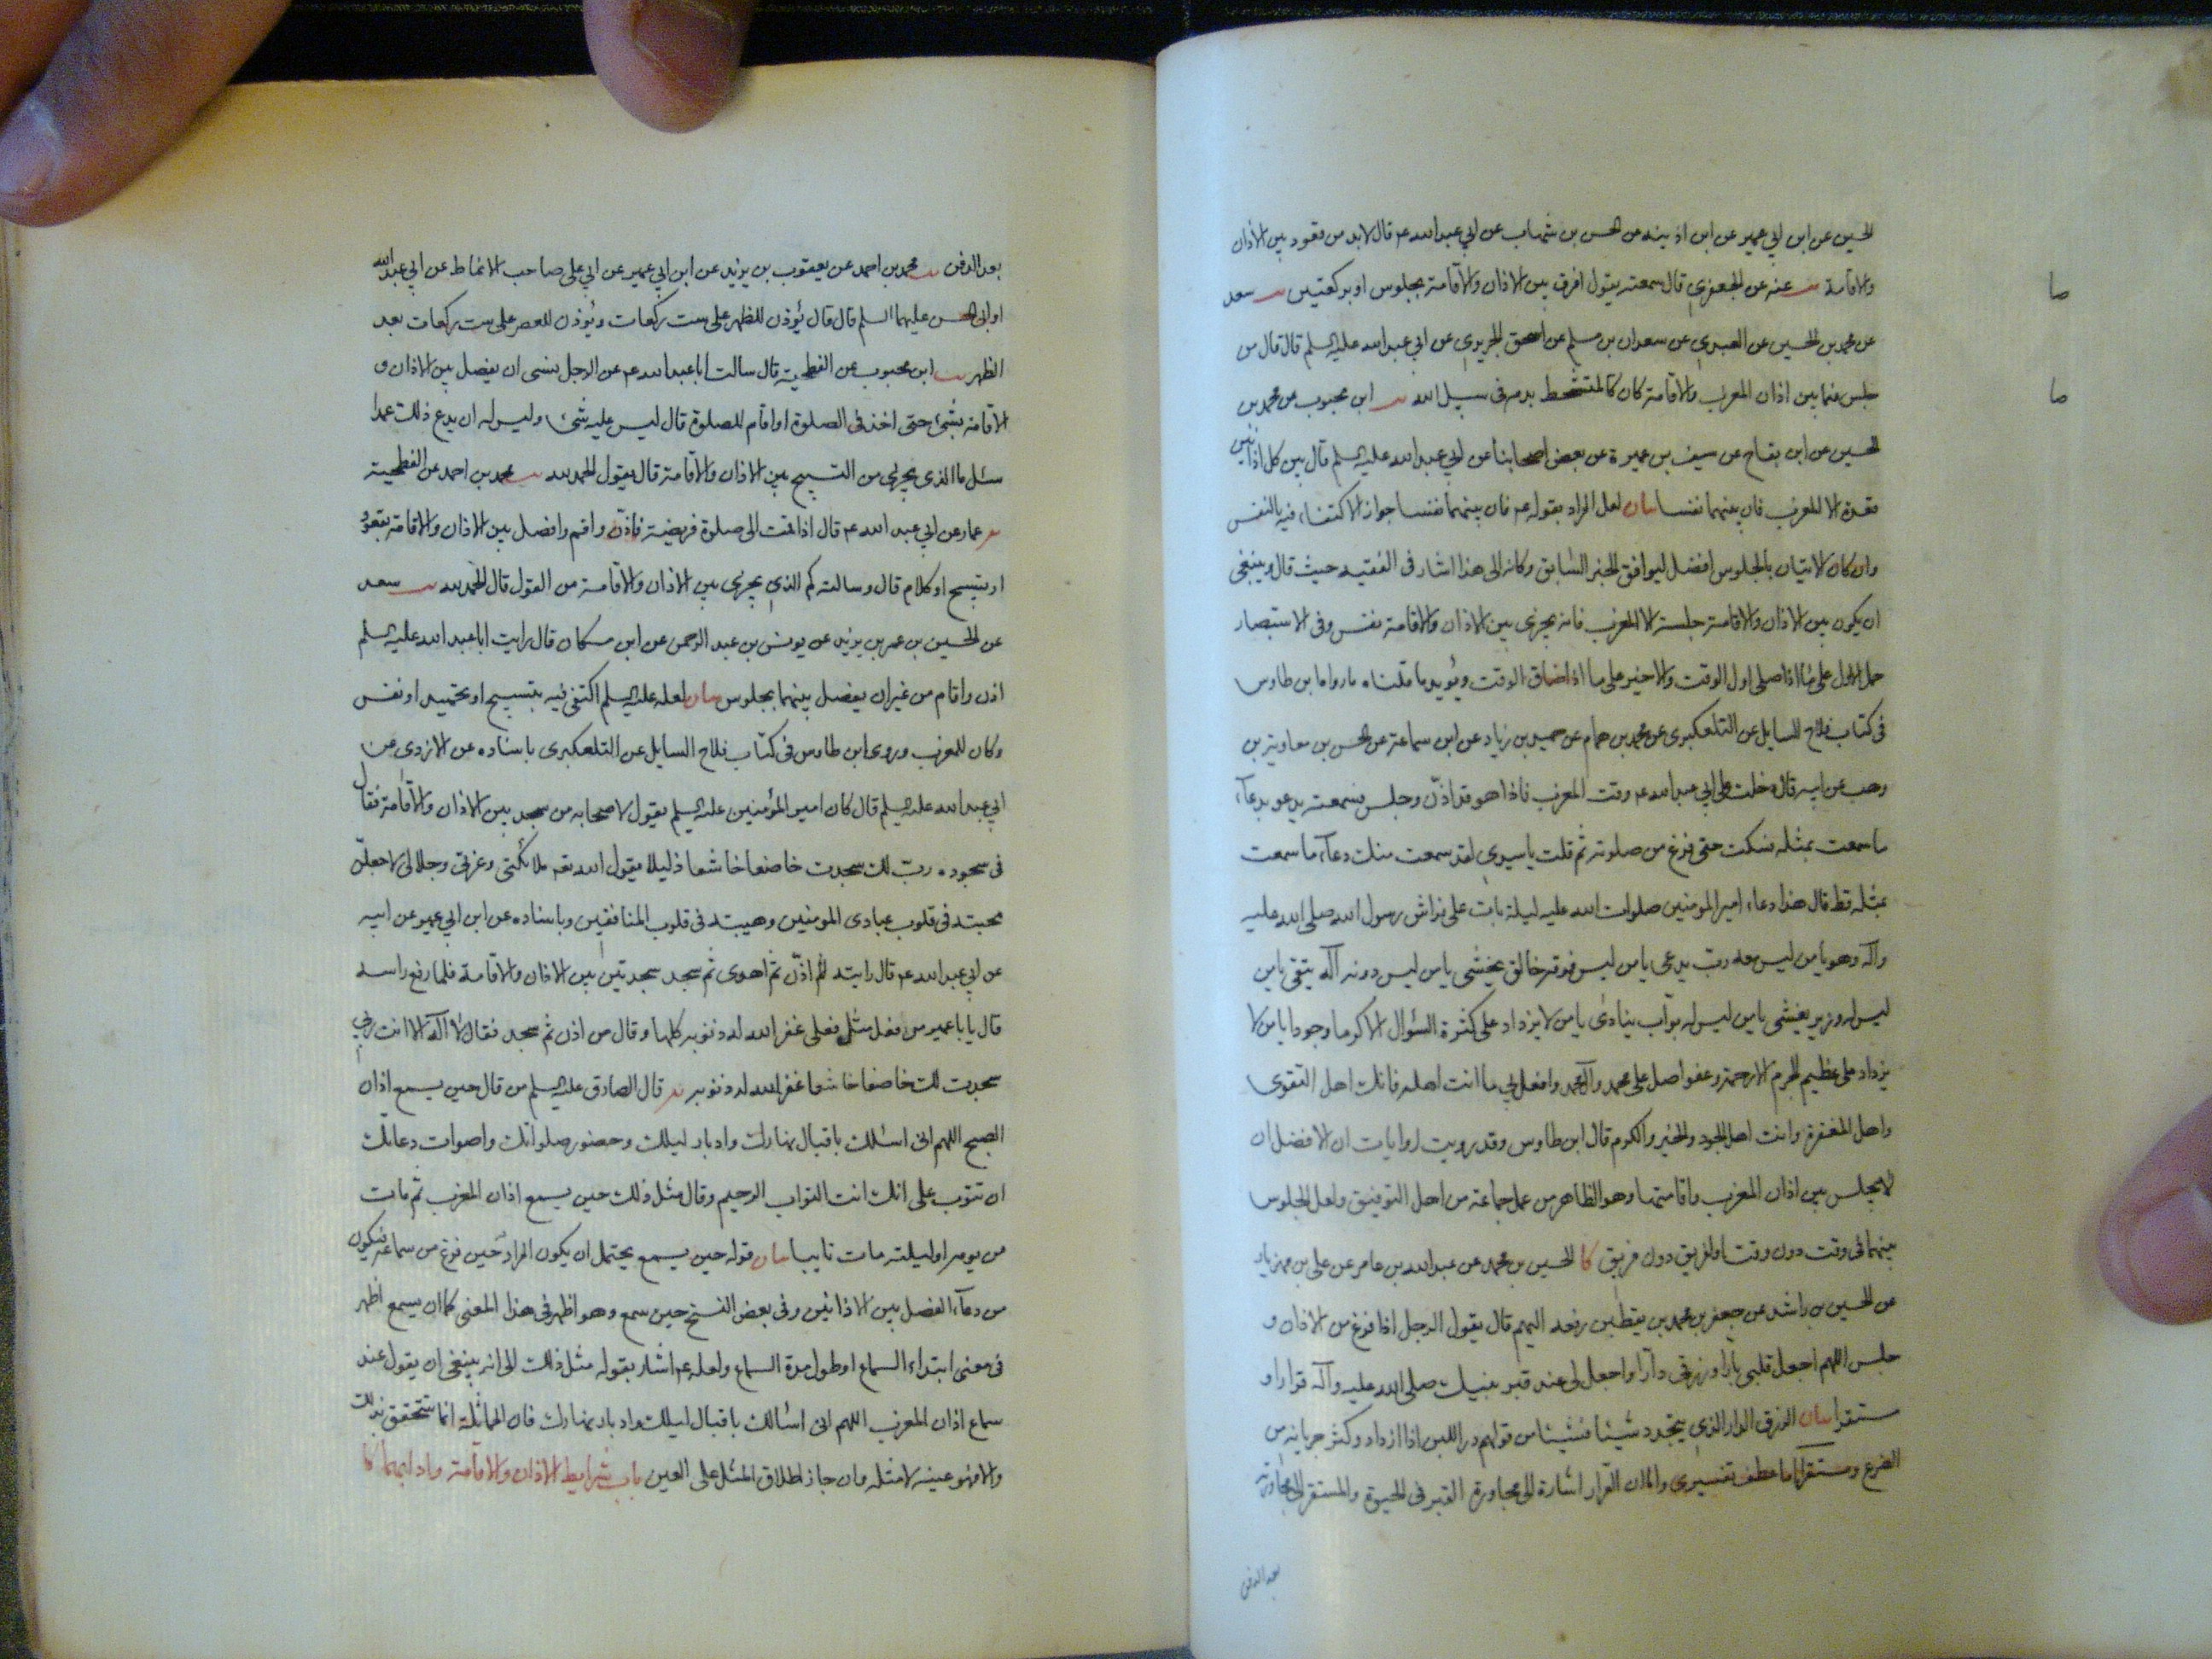 الحسين عن ابن ابي عمير عن ابن اذينه عن الحسن بن شهاب عن ابي عبدالله ع قال لابد من قعود بين الاذان
والاقامة يب عنه عن الجعفري قال سمعته يقول افرق بين الاذان والاقامة بجلوس او بركعتين يب سعد
صا
عن محمد بن الحسين عن العبدي عن سعدان بن مسلم عن اسحق الجريري عن ابي عبد الله عليه السلم قال قال من
جلس فيما بين اذان المغرب والاقامة كان كالمتشحط بدمه في سبيل الله يب ابن محبوب عن محمد بن
صا
الحسين عن ابن بقاح عن سيف بن عميرة عن بعض اصحابنا عن ابي عبد الله عليه السلم قال بين كل اذانين
قعدة الا المغرب فان بينهما نفسا بيان لعل المراد بقوله ع فان بينهما نفسا جواز الاكتفاء فيه بالنفس
وان كان الاتيان بالجلوس افضل ليوافق الخبر السابق وكانه الى هذا اشار في الفقيه حيث قال وينبغي
ان يكون بين الاذان والاقامة جلسة الا المغرب فانه يجزي بين الاذان والاقامة نفس وفي الاستبصار
حمل الاول على ما اذا صلى اول الوقت والاخير على ما اذا ضاق الوقت ويؤيد ما قلناه ما رواه ابن طاوس
في كتاب فلاح السايل عن التلعكبري عن محمد بن همام عن حميد بن زياد عن ابن سماعة عن الحسن بن معاوية بن
وهب عن ابيه قال دخلت على ابي عبد الله ع وقت المغرب فاذا هو قد اذّن وجلس فسمعته يدعو بدعآء
ما سمعت بمثله فسكت حتى فرغ من صلوته ثم قلت يا سيدي لقد سمعت منك دعآء ما سمعت
بمثله قط قال هذا دعاء امير المومنين صلوات الله عليه ليلة بات على فراش رسول الله صلى الله عليه
وآله وهو يا من ليس معه ربّ يدعى يا من ليس فوقه خالق يخشى يا من ليس دونه آله يتقى يا من
ليس له وزير يغشى يا من ليس له بوّاب ينادى يا من لا يزداد على كثرة السؤال الا كرما وجودا يا من لا
يزداد على عظيم الجرم الا رحمة وعفوا صل على محمد وآل محمد وافعل بي ما انت اهله فانك اهل التقوى
واهل المغفرة وانت اهل الجود والخير والكرم قال ابن طاوس وقد رويت روايات ان الافضل ان
لا يجلس بين اذان المغرب واقامتها وهو الظاهر من عمل جماعة من اهل التوفيق ولعل الجلوس
بينهما في وقت دون وقت او لفريق دون فريق كا الحسين بن محمد عن عبد الله بن عامر عن علي بن مهزيار
عن الحسين بن راشد عن جعفر بن محمد بن يقطين رفعه اليهم قال يقول الرجل اذا فرغ من الاذان و
جلس اللهم اجعل قلبي بارا ورزقي دآرا واجعل لي عند قبر نبيك صلى الله عليه وآله قرارا و
مستقرا بيان الرزق الدار الذي يتجدد شيئا فشيئا من قولهم در اللبن اذا زاد وكثر جريانه من
الضرع ومستقرا اما عطف تفسيري واما ان القرار اشارة الى مجاورة القبر في الحيوة والمستقر الى مجاورته
بعد الدفن
بعد الدفن يب محمد بن احمد عن يعقوب بن يزيد عن ابن ابي عمير عن ابي علي صاحب الانماط عن ابي عبد الله
او ابي الحسن عليهما السلم قال قال يُؤذن للظهر على ست ركعات ويُؤذن للعصر على ست ركعات بعد
الظهر يب ابن محبوب عن الفطحية قال سالت ابا عبد الله ع عن الرجل ينسى ان يفصل بين الاذان و
الاقامة بشئ حتى اخذ في الصلوة او اقام للصلوة قال ليس عليه شئ وليس له ان يدع ذلك عمدا
سئل ما الذي يجزي من التسبيح بين الاذان والاقامة قال يقول الحمد لله يب محمد بن احمد عن الفطحية
عمار عن ابي عبد الله ع قال اذا قمت الى صلوة فريضة فاذّن واقم وافصل بين الاذان والاقامة بقعود
او بتسبيح او كلام قال وسالته كم الذي يجزي بين الاذان والاقامة من القول قال الحمد لله يب سعد
عن الحسين بن عمر بن يزيد عن يونس بن عبد الرحمن عن ابن مسكان قال رايت ابا عبد الله عليه السلم
اذن واقام من غير ان يفصل بينهما بجلوس بيان لعله عليه السلم اكتفى فيه بتسبيح او تحميد او نفس
وكان للمغرب وروى ابن طاوس في كتاب فلاح السايل عن التلعكبري باسناده عن الازدي عن
ابي عبد الله عليه السلم قال كان امير المؤمنين عليه السلم يقول لاصحابه من سجد بين الاذان والاقامة فقال
في سجوده ربّ لك سجدت خاضعا خاشعا ذليلا يقول الله تع ملائكتي وعزتي وجلالي لاجعلن
محبته في قلوب عبادي المومنين وهيبته في قلوب المنافقين وباسناده عن ابن ابي عمير عن ابيه
عن ابي عبد الله ع قال رايته اذّن ثم اهوى ثم سجد سجدتين بين الاذان والاقامة فلما رفع راسه
قال يا با عمير من فعل مثل فعلي غفر الله له ذنوبه كلها وقال من اذن ثم سجد فقال لا آله الا انت ربي
سجدت لك خاضعا خاشعا غفر الله له ذنوبه يه قال الصادق عليه السلم من قال حين يسمع اذان
الصبح اللهم اني اسئلك باقبال نهارك وادبار ليلك وحضور صلواتك واصوات دعاتك
ان تتوب علي انك انت التواب الرحيم وقال مثل ذلك حين يسمع اذان المغرب ثم مات
من يومه او ليلته مات تايبا بيان قوله حين يسمع يحتمل ان يكون المراد حين فرغ من سماعه فيكون
من دعآء الفصل بين الاذانين وفي بعض النسخ حين سمع وهو اظهر في هذا المعنى كما ان يسمع اظهر
في معنى ابتداء السماع او طول مدة السماع ولعله ع اشار بقوله مثل ذلك الى انه ينبغي ان يقول عند
سماع اذان المغرب اللهم اني اسئالك باقبال ليلك وادبار نهارك فان المماثلة انما تتحقق بذلك
والا فهو عينه لا مثله وان جاز اطلاق المثل على العين باب شرايط الاذان والاقامة وادابهما كا